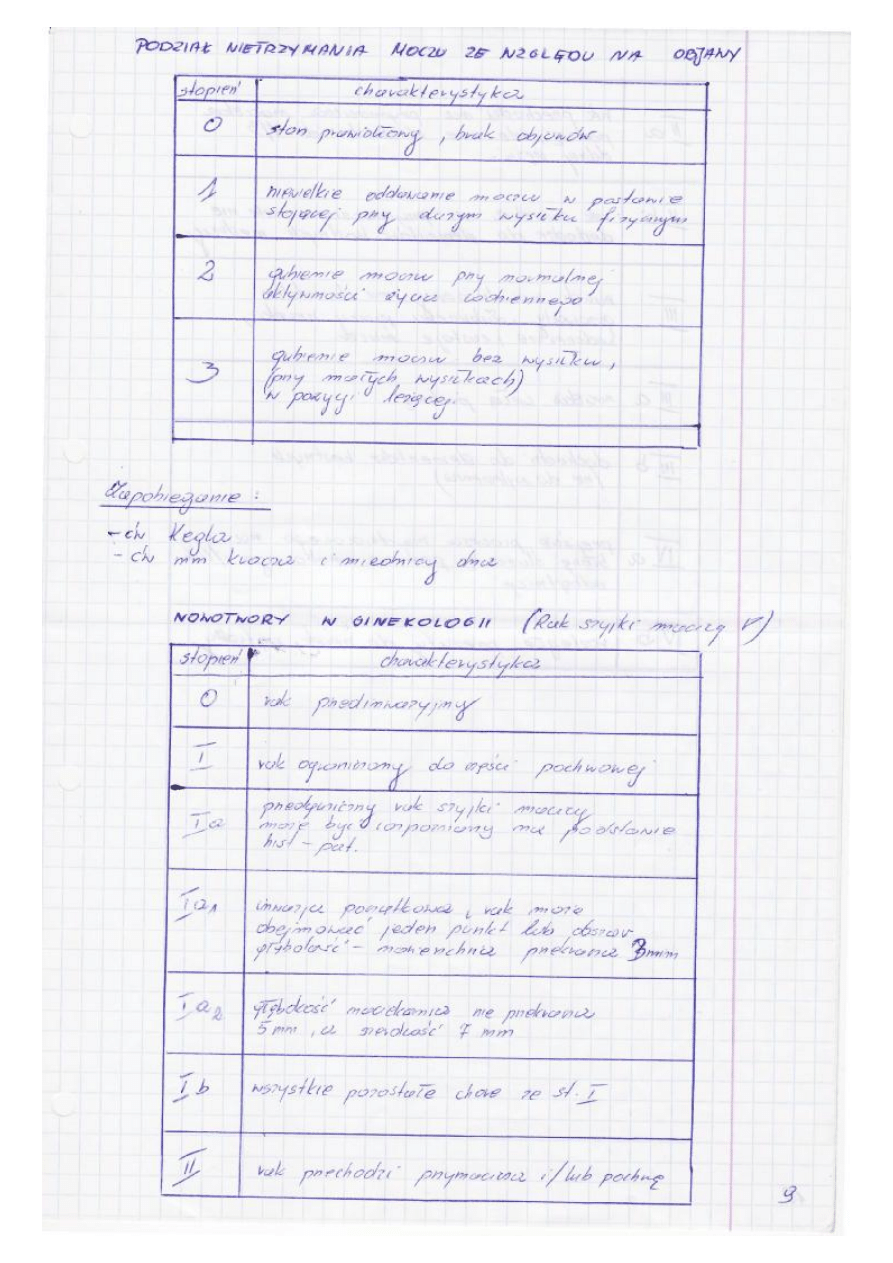 PODZIAŁ NIETRZYMANIA MOCZU ZE WZGLĘDU NA OBJAWY
stopień charakterystyka
0 stan prawidłowy, brak objawów
1 niewielkie oddawanie moczu w postawie
stojącej przy dużym wysiłku fizycznym
2 gubienie moczu przy normalnej
aktywności życia codziennego
3 gubienie moczu bez wysiłku,
(przy małych wysiłkach)
w pozycji leżącej.
Zapobieganie :
- ćw Kegla
- ćw mm krocza i miednicy dna
NOWOTWORY W GINEKOLOGII (Rak szyjki macicy)
stopień charakterystyka
0 rak przedinwazyjny
I rak ograniczony do części pochwowej
Ia przedkliniczny rak szyjki macicy
może być rozpoznany na podstawie
hist-pat.
Ia1 inwazja początkowa, rak może
obejmować jeden punkt lub obszar
głębokość - przekracza 3mm
Ia2 głębokość naciekania nie przekracza
5 mm, a szerokość 7 mm
Ib wszystkie pozostałe chore ze st. I
II rak przechodzi przymacicza i/lub pochwę
9